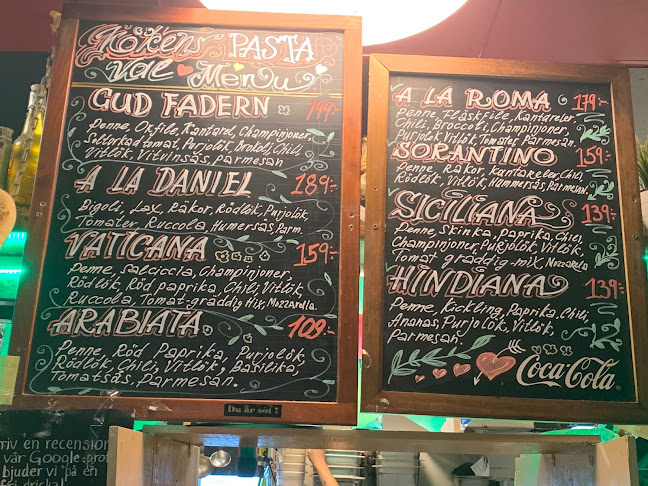 Kökens PASTA
Val Menu
GUD FADERN 199:-
Penne, Oxfile, Kantarel, Champinjoner,
Soltorkad tomat, Purjolök, Brokoli, Chili,
Vitlök, Vitvinsås, parmesan
A LA DANIEL 189:-
Bigoli, Lax, Räkor, Rödlök, Purjolök,
Tomater, Ruccola, Humersås, Parm.
VATICANA 159:-
Penne, Salciccia, Champinjoner,
Rödlök, Röd paprika, Chili, Vitlök
Ruccola, Tomat-gräddig Mix, Mozzarella.
ARABIATA. 109:-
Penne Röd Paprika, Purjolök,
Rödlök, Chili, Vitlök, Basilika,
Tomatsås, Parmesan.
Du är söt!
A LA ROMA 179:-
Penne, Fläskfile, Kantareler,
Chili, Broccoli, Champinjoner,
Purjolök Vitlök, Tomater, Parmesan.
SORANTINO 159:-
Penne, Räkor, Kantareler, Chili,
Rödlök, Vitlök, Hummersås, Parmesan.
SICILIANA 139:-
Penne, Skinka, Paprika, Chili,
Champinjoner, Purjolök Vitlök,
Tomat gräddig-mix, Mozzarela
HINDIANA 139:-
Penne, Kickling, Paprika, Chili,
Ananas, Purjolök, Vitlök,
Parmesan.
Coca-Cola
riv en recension
vår Google-prof
bjuder vi på en
fri dricka!